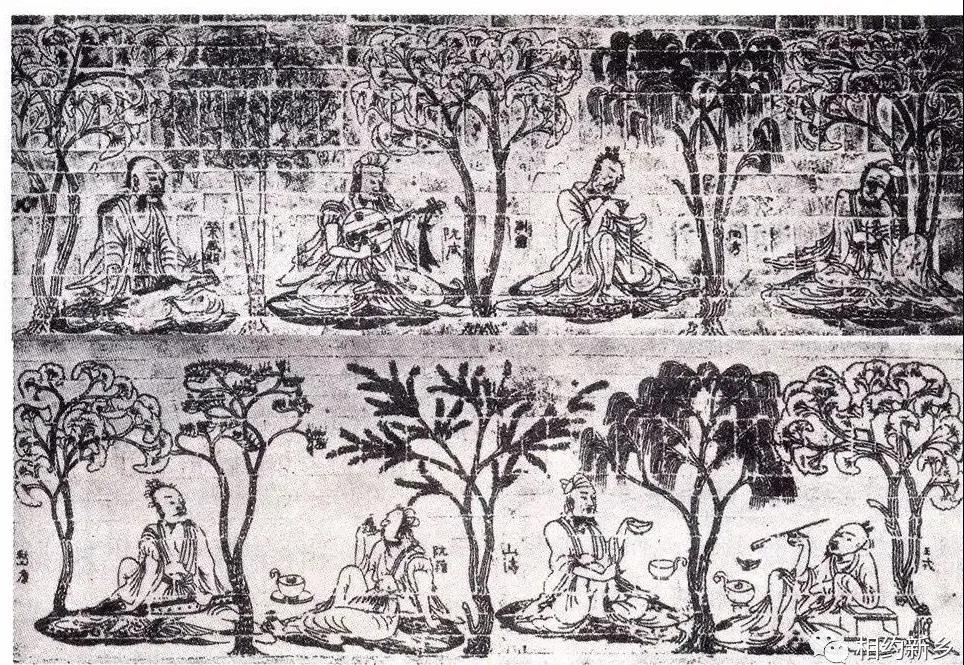 榮啟期
阮咸
劉靈
向秀
嵇康
阮籍
山濤
王戎
相约新乡